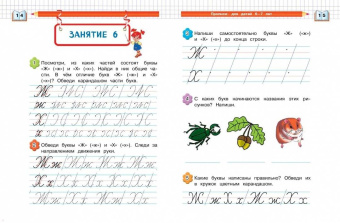 14
ЗАНЯТИЕ 6
1 Посмотри, из каких частей состоят буквы
«Ж» («ж») и «Х» («х»). Найди в них общие части.
В чём отличие букв «Ж» («ж») и «Х»
(«х»)? Обведи карандашом части букв.
2 Обведи буквы «Ж» («ж») и «Х» («х»). Следи за
направлением движения руки.
Ж ж Ж ж Ж ж
Х х Х х Х х
Прописи для детей 6-7 лет
15
Напиши самостоятельно буквы «Ж» («ж»)
и «Х» («х») до конца строки.
Ж
Х
С каких букв начинаются названия этих рисунков?
Какие буквы написаны правильно? Обведи их
в кружок цветным карандашом.